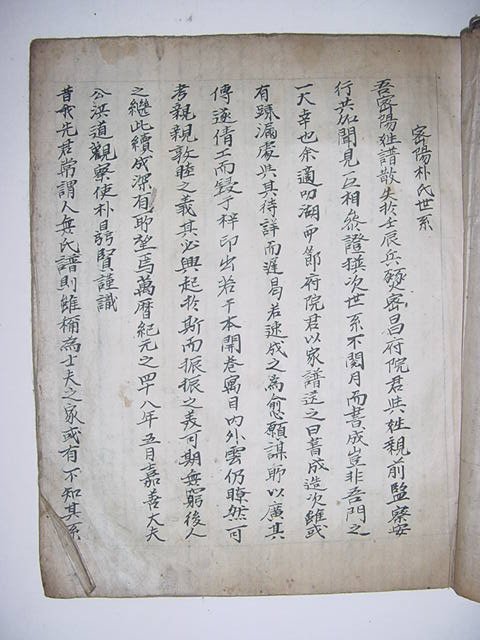 密陽朴氏世系
吾密陽姓譜散失於壬辰兵燹密昌府院君與姓親前監察安
行共加聞見互相叅證撰次世系不閱月而書成豈非吾門之
一大幸也余適叨湖西節府院君以家譜送之曰書成造次雖或
有踈漏處與其待詳而遲曷若速成之為愈願謀所以廣其
傳遂倩工而鋟于梓印出若干本開卷寓目內外雲仍瞭然可
考親親敦睦之義其必興起於斯而振振之義可期無窮後人
之繼此續成深有所望焉萬曆紀元之四十八年五月嘉善大夫
公洪道觀察使朴賢謹識
昔我先君常謂人無氏譜則雖稱為士夫之家或有不知其系